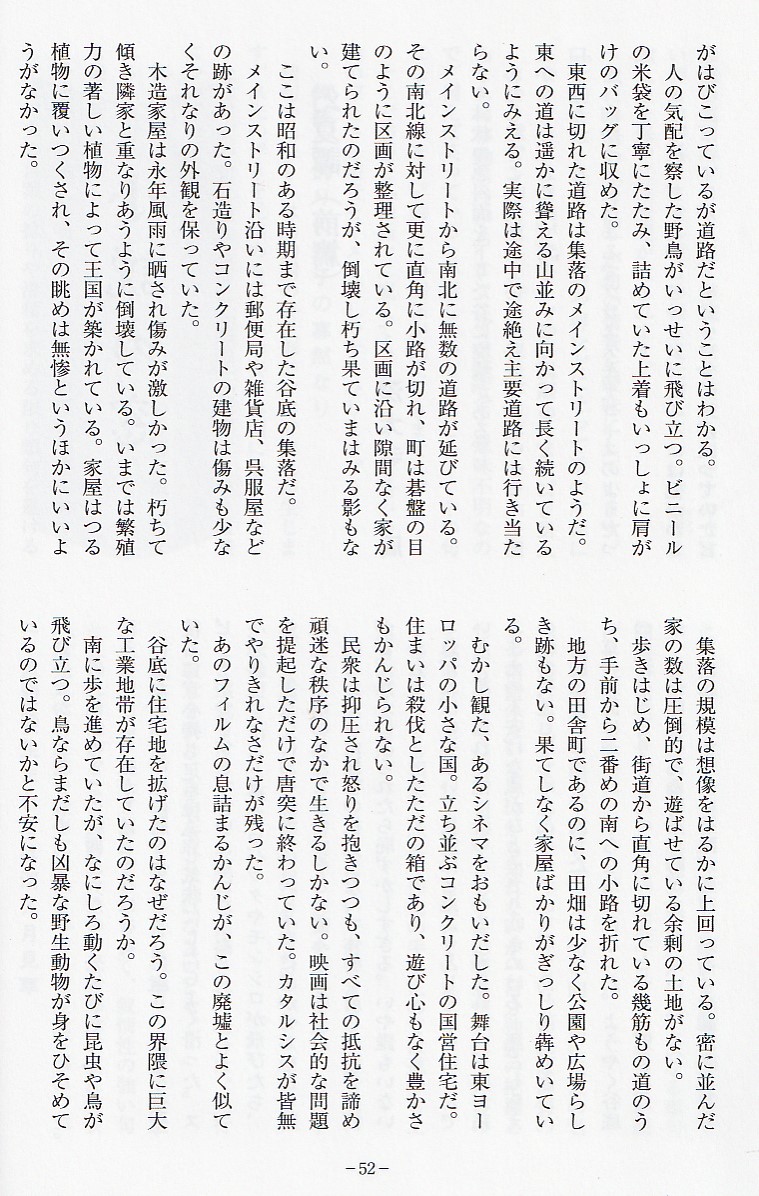 がはびこっているが道路だということはわかる。
　人の気配を察した野鳥がいっせいに飛び立つ。ビニール
の米袋を丁寧にたたみ、詰めていた上着もいっしょに肩が
けのバッグに収めた。
　東西に切れた道路は集落のメインストリートのようだ。
東への道は遥かに聳える山並みに向かって長く続いている
ようにみえる。実際は途中で途絶え主要道路には行き当た
らない。
　メインストリートから南北に無数の道路が延びている。
その南北線に対して更に直角に小路が切れ、町は碁盤の目
のように区画が整理されている。区画に沿い隙間なく家が
建てられたのだろうが、倒壊し朽ち果ていまはみる影もな
い。
　ここは昭和のある時期まで存在した谷底の集落だ。
　メインストリート沿いには郵便局や雑貨店、呉服屋など
の跡があった。石造りやコンクリートの建物は傷みも少な
くそれなりの外観を保っていた。
　木造家屋は永年風雨に晒され傷みが激しかった。朽ちて
傾き隣家と重なりあうように倒壊している。いまでは繁殖
力の著しい植物によって王国が築かれている。家屋はつる
植物に覆いつくされ、その眺めは無惨というほかにいいよ
うがなかった。
　集落の規模は想像をはるかに上回っている。密に並んだ
家の数は圧倒的で、遊ばせている余剰の土地がない。
　歩きはじめ、街道から直角に切れている幾筋もの道のう
ち、手前から二番めの南への小路を折れた。
　地方の田舎町であるのに、田畑は少なく公園や広場らし
き跡もない。果てしなく家屋ばかりがぎっしり犇めいてい
る。
　むかし観た、あるシネマをおもいだした。舞台は東ヨー
ロッパの小さな国。立ち並ぶコンクリートの国営住宅だ。
住まいは殺伐としたただの箱であり、遊び心もなく豊かさ
もかんじられない。
　民衆は抑圧され怒りを抱きつつも、すべての抵抗を諦め
頑迷な秩序のなかで生きるしかない。映画は社会的な問題
を提起しただけで唐突に終わっていた。カタルシスが皆無
でやりきれなさだけが残った。
　あのフィルムの息詰まるかんじが、この廃墟とよく似て
いた。
　谷底に住宅地を拡げたのはなぜだろう。この界隈に巨大
な工業地帯が存在していたのだろうか。
　南に歩を進めていたが、なにしろ動くたびに昆虫や鳥が
飛び立つ。鳥ならまだしも凶暴な野生動物が身をひそめて
いるのではないかと不安になった。
−52−